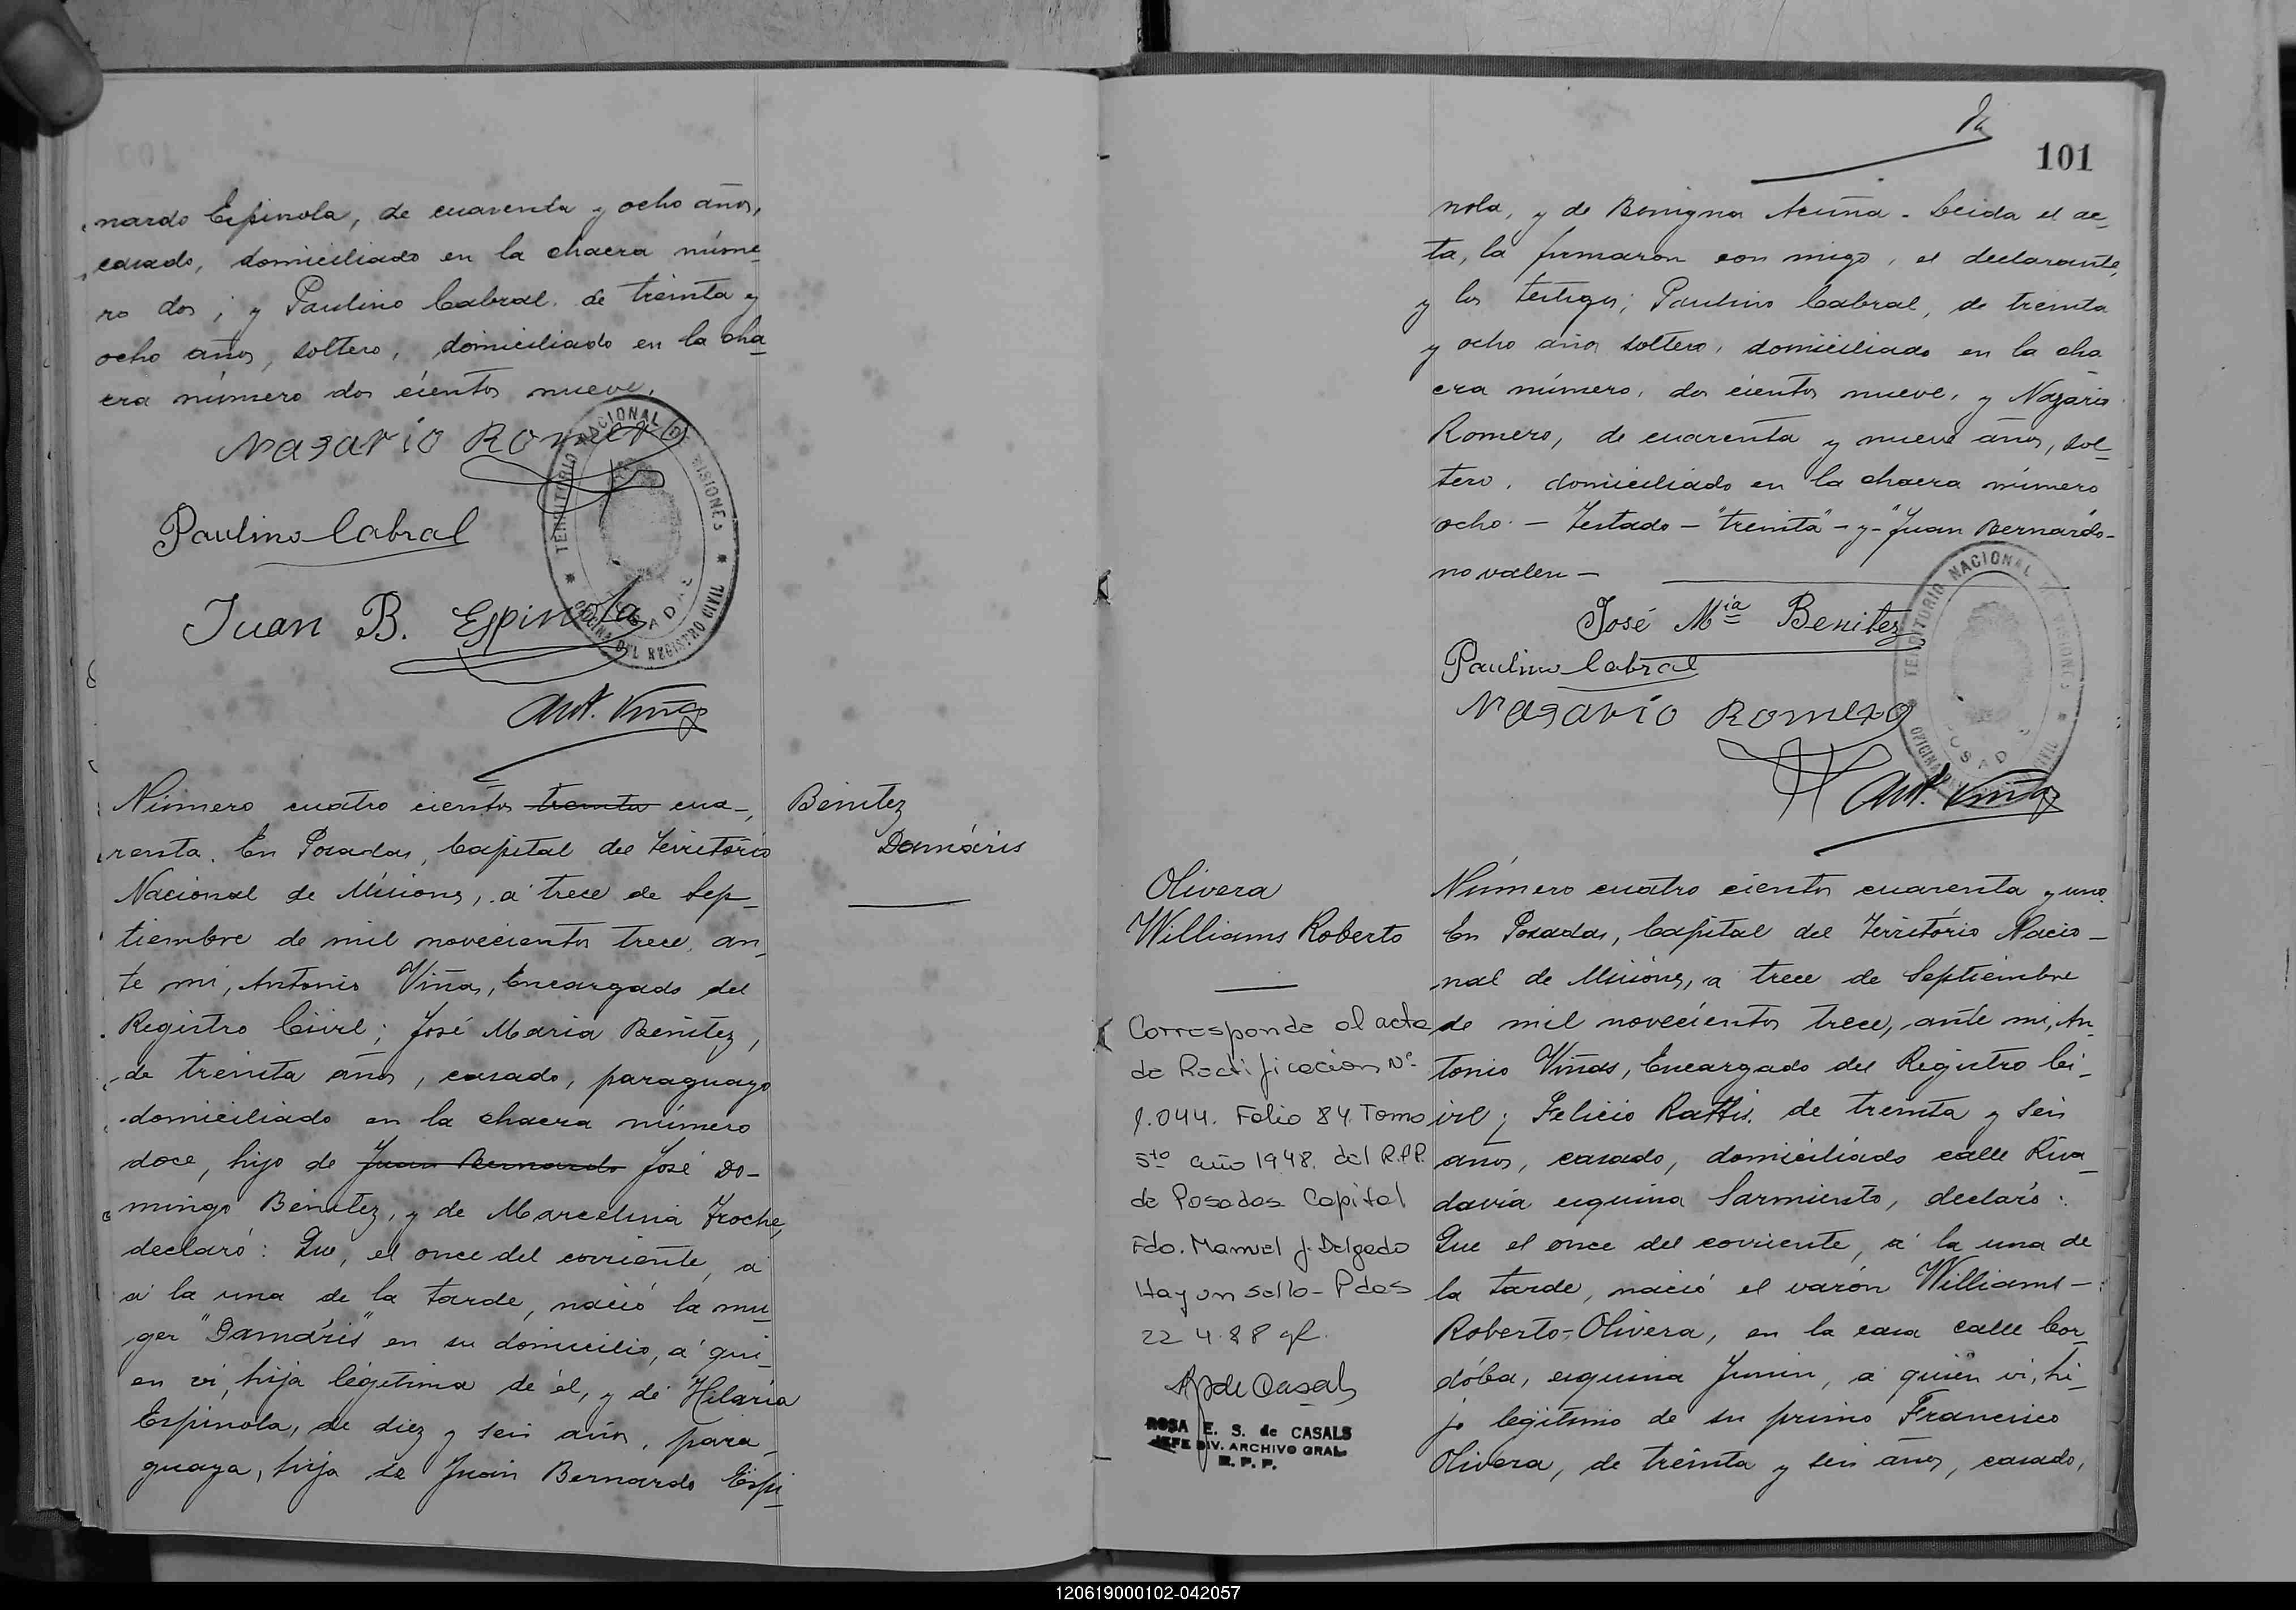 nardo Espinola, de cuarenta y ocho años,
casado, domiciliado en la chacra núme
ro dos; y Paulino Cabral. de treinta y
ocho años, soltero, domiciliado en la cha
cra número dos cientos nueve.
Nasario Romero
Paulino Cabral
Juan B. Espinola
TERRITORIO NACIONAL DE MISIONES
OFICINA DEL REGISTRO CIVIL
POSADAS
Ant. Viñas
Número cuatro cientos treinta cua-
renta. En Posadas, Capital del Territorio
Nacional de Misiones, a trece de Sep-
tiembre de mil novecientos trece, an-
te mi, Antonio Viñas, Encargado del
Registro Civil; José Maria Benitez,
de treinta años, casado, paraguayo
domiciliado en la chacra número
doce, hijo de Juan Bernardo José Do-
mingo Benitez, y de Marcelina Troche,
declaró: Que, el once del corriente, a
a la una de la tarde, nació la mu
ger "Damáris" en su domicilio, a qui-
en vi, hija légitima de él, y de Hilaria
Espinola, de diez y seis años, para-
guaya, hija de Juan Bernardo Espi-
Benitez
Damáris
101
nola, y de Benigna Acuña. Leida el ac-
ta, la firmaron con migo, el declarante,
y los testigos; Paulino Cabral, de treinta
y ocho años soltero, domiciliado en la cha
cra número, dos cientos nueve, y Nazario
Romero, de cuarenta y nueve años, sol-
tero, domiciliado en la chacra número
ocho. — Testado — "treinta" — y — "Juan Bernardo —
no valen —
José Mía Benitez
Paulino Cabral
Nasario Romero
TERRITORIO NACIONAL DE MISIONES
OFICINA DEL REGISTRO CIVIL
POSADAS
Ant. Viñas
Olivera
Williams Roberto
Corresponde al acta
de Rectificacion Nº
1.044. Folio 84. Tomo
5to año 1948. del R.P.P.
de Posadas Capital
Fdo. Manuel J. Delgado
Hay un sello - Pdas
22 4.88
ROSA E. S. de CASALS
JEFE DIV. ARCHIVO GRAL.
R. P. P.
Número cuatro cientos cuarenta y uno.
En Posadas, Capital del Território Nacio-
nal de Misiones, a trece de Septiembre
de mil novecientos trece, ante mi, An-
tonio Viñas, Encargado del Registro Ci-
vil; Felicio Rattis, de treinta y seis
años, casado, domiciliado calle Riva-
davia esquina Sarmiento, declaró:
Que el once del corriente, a la una de
la tarde, nació el varón Williams-
Roberto-Olivera, en la casa calle Cor-
dóba, esquina Junin, a quien vi, hi-
jo legitimo de su primo Francisco
Olivera, de treinta y seis años, casado,
120619000102-042057